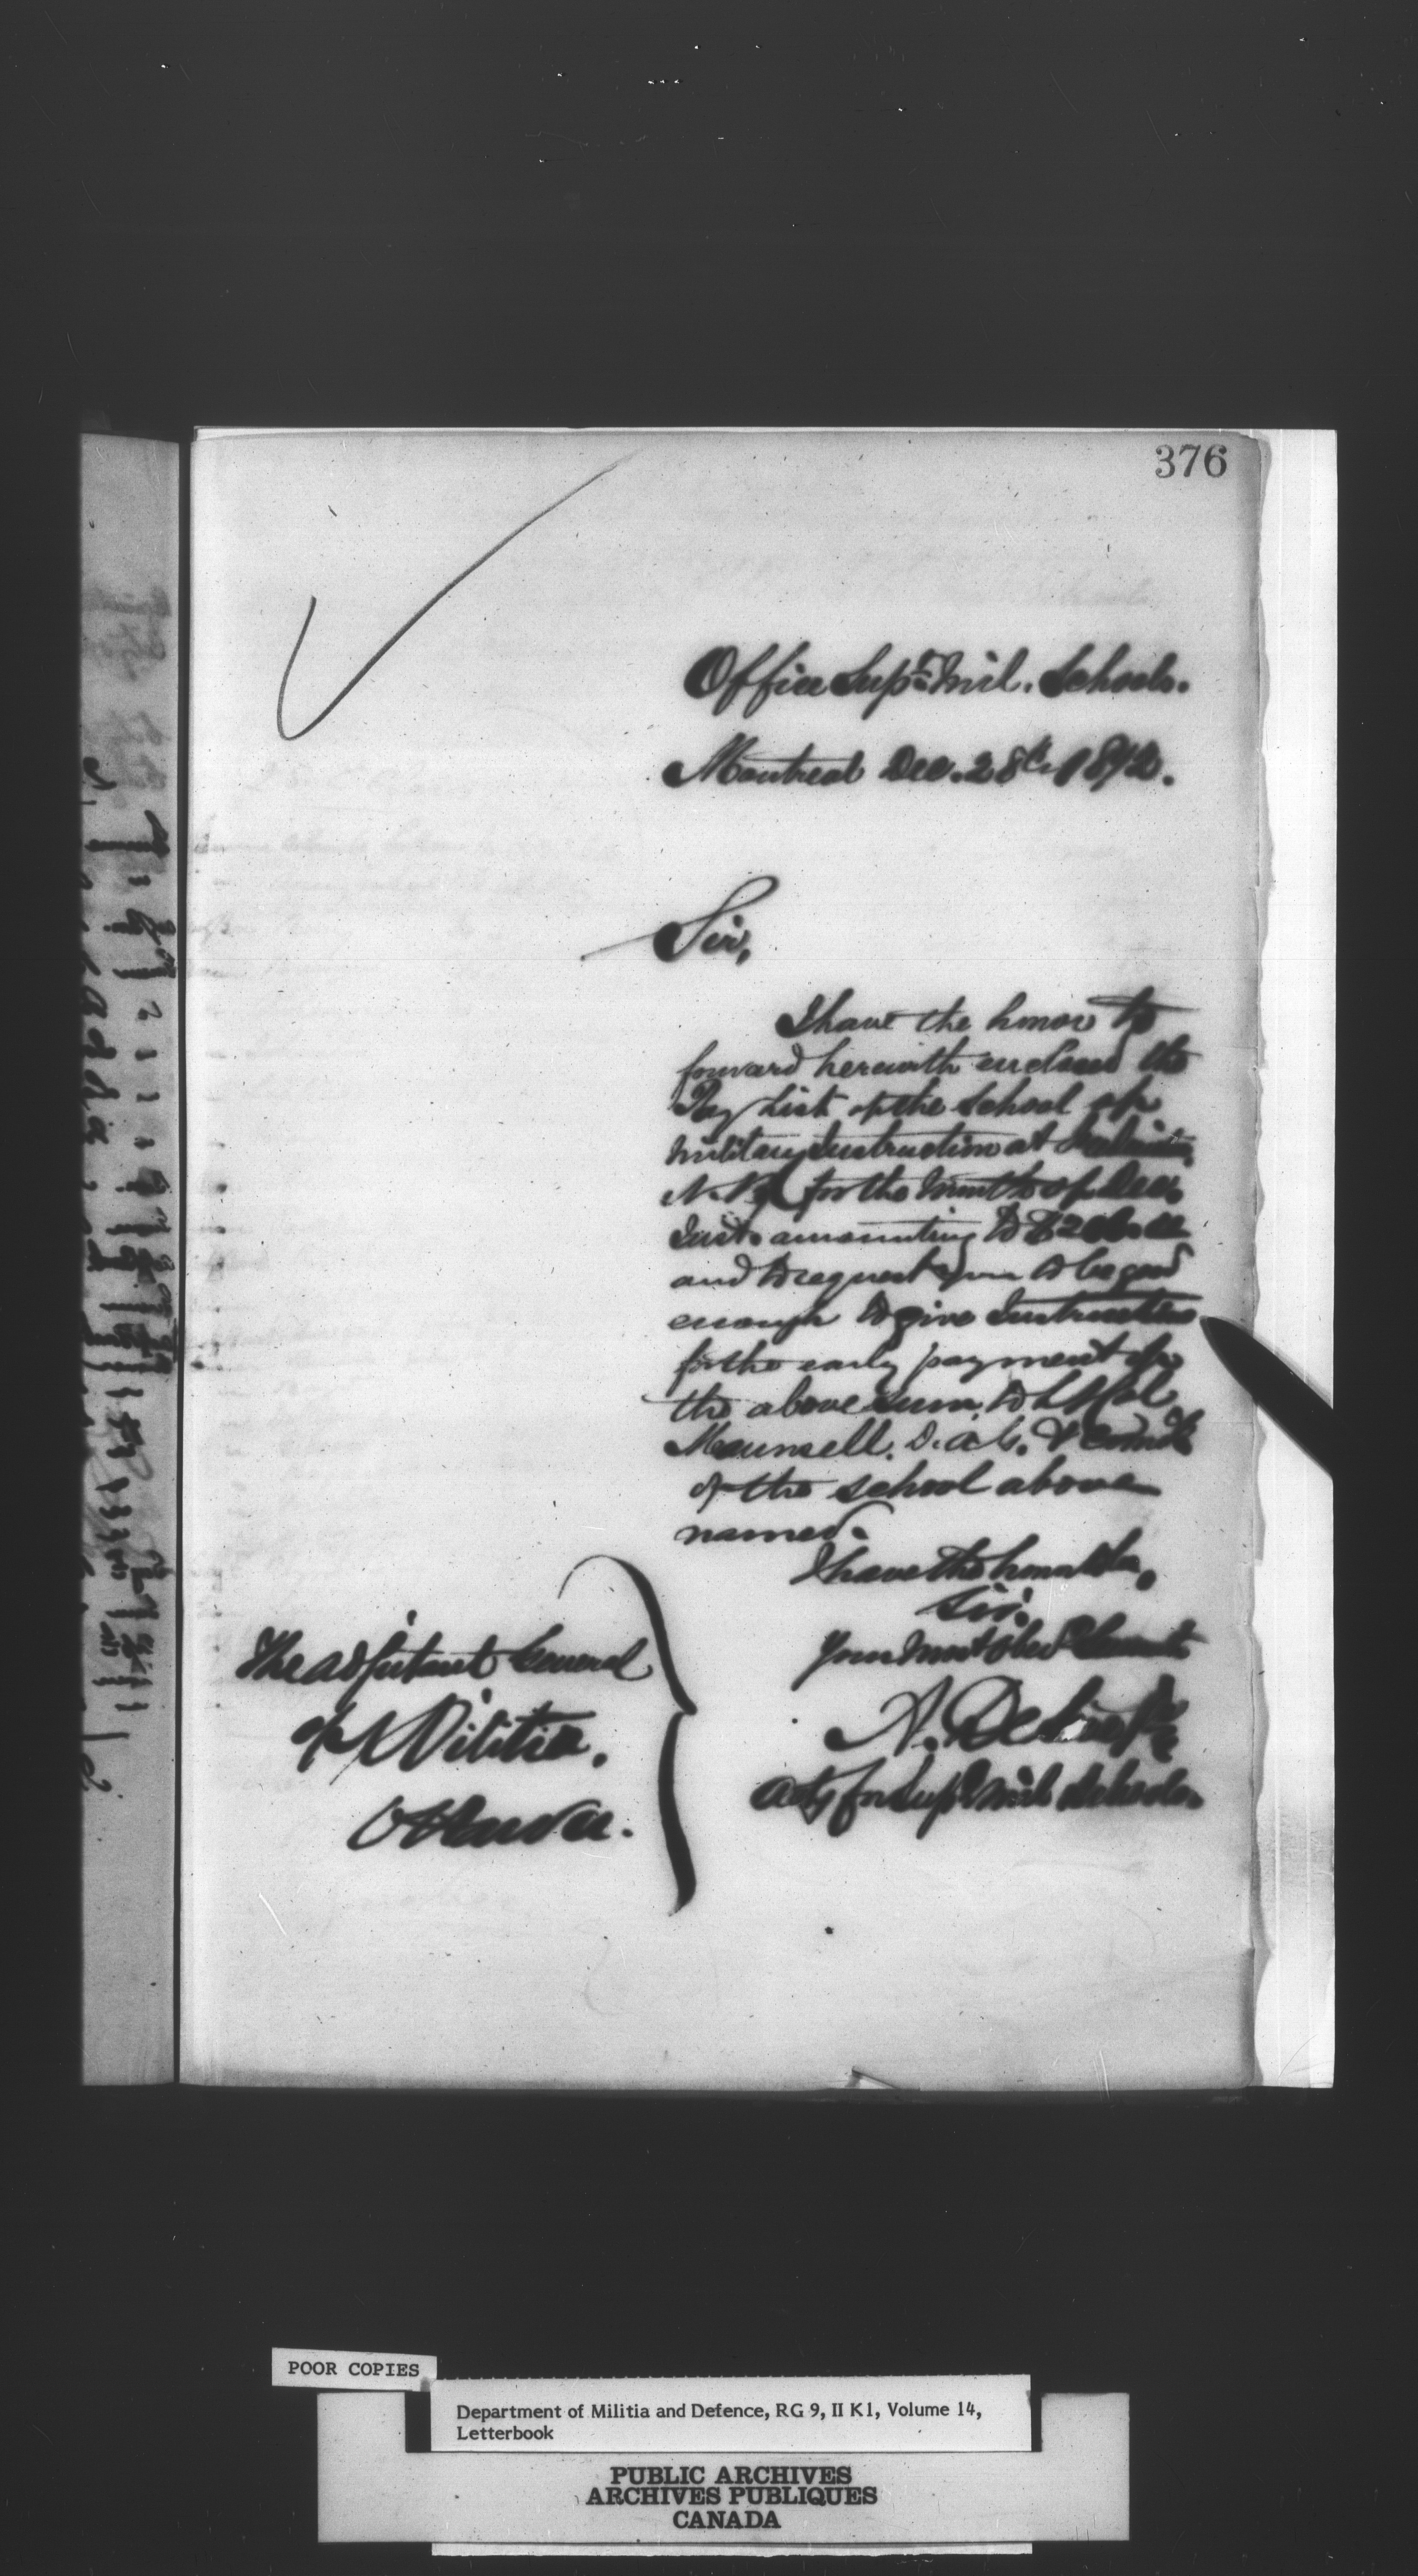 376
Office Supt Mil. Schools.
Montreal Dec. 28th 1872.
Sir,
I have the honor to
forward herewith enclosed the
Pay List of the School of
Military Instruction at
N.B. for the Month of Dec.
Inst. amounting to
and to request you to be good
enough to give Instructions
for the early payment of
the above sum, to Lt Col
Maunsell. D.A.G. & Comdt
of the school above
named.
I have the honor to be,
Sir.
Your Most obed Servant
A.
for Supt Mil Schools.
The Adjutant General
of Militia.
Ottawa.
POOR COPIES
Department of Militia and Defence, RG 9, II K1, Volume 14,
Letterbook
PUBLIC ARCHIVES
ARCHIVES PUBLIQUES
CANADA